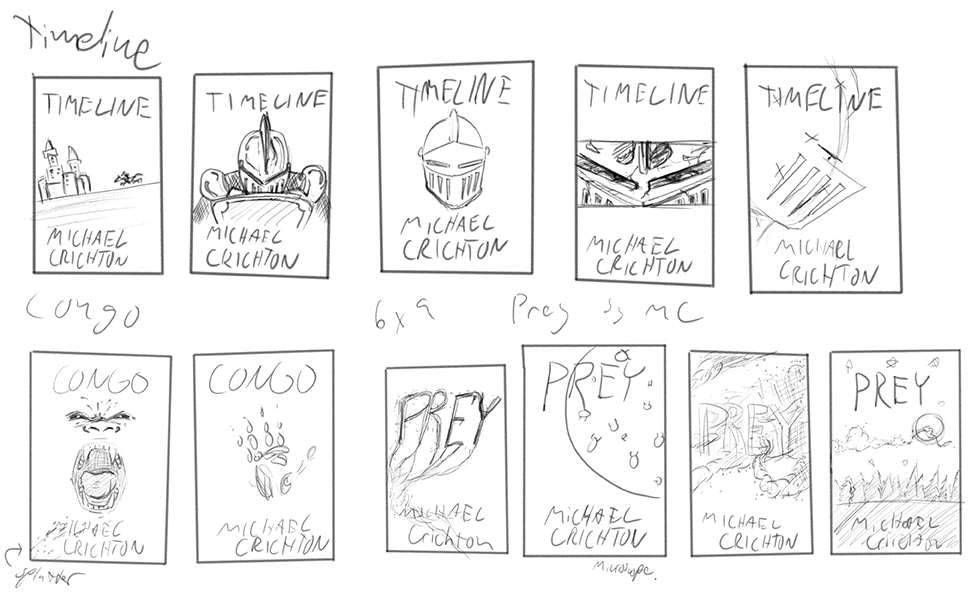 Timeline
TIMELINE
MICHAEL
CRICHTON
TIMELINE
MICHAEL
CRICHTON
TIMELINE
MICHAEL
CRICHTON
TIMELINE
MICHAEL
CRICHTON
TIMELINE
MICHAEL
CRICHTON
Congo
6x9
Prey by MC
CONGO
MICHAEL
CRICHTON
splatter
CONGO
MICHAEL
CRICHTON
PREY
MICHAEL
Crichton
PREY
MICHAEL
CRICHTON
Microscope.
PREY
MICHAEL
CRICHTON
PREY
Michael
Crichton